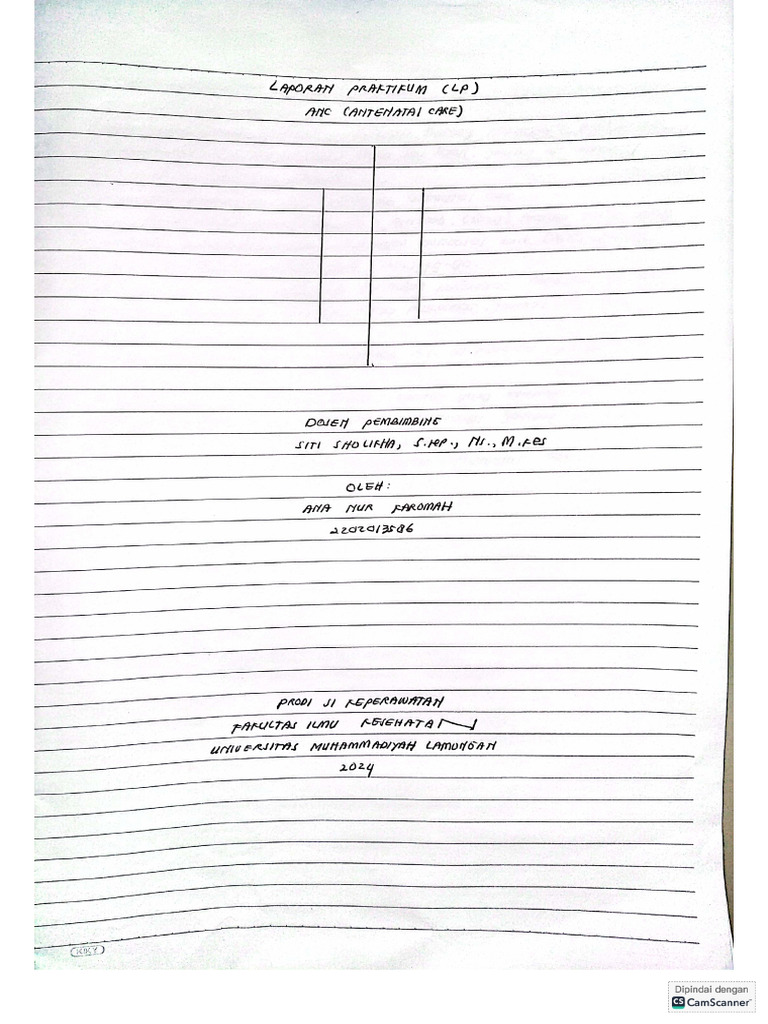 LAPORAN PRAKTIKUM (LP)
ANC (ANTENATAL CARE)
DOSEN PEMBIMBING
SITI SHOLIKHA, S.Kep., Ns., M.Kes
OLEH:
ANA NUR KAROMAH
2202013586
PRODI S1 KEPERAWATAN
FAKULTAS ILMU KESEHATAN
UNIVERSITAS MUHAMMADIYAH LAMONGAN
2024
KIKY
Dipindai dengan
CS CamScanner